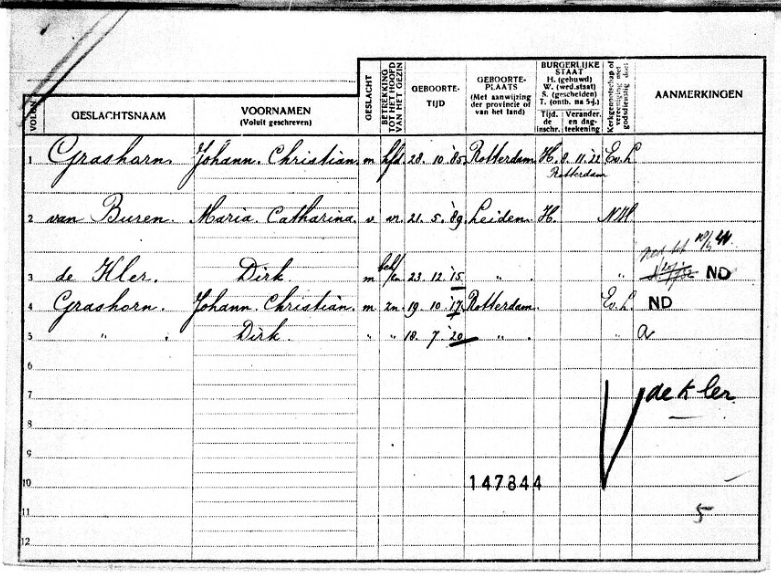 VOLGNR. GESLACHTSNAAM VOORNAMEN (Voluit geschreven) GESLACHT BETREKKING TOT HET HOOFD VAN HET GEZIN GEBOORTE-TIJD GEBOORTE-PLAATS (Met aanwijzing der provincie of van het land) BURGERLIJKE STAAT H. (gehuwd) W. (wed.staat) S. (gescheiden) T. (ontb. na 5 j.) Tijd. inschr. Verander. en dag-teekening Kerkgenootschap of vereeniging met godsdienstig doel AANMERKINGEN
1 Grashorn. Johann. Christian. m hfd. 28. 10. '85. Rotterdam H. 8. 11. '22 Ev. L.
Rotterdam
2 van Buren. Maria. Catharina. v vr. 21. 5. '89. Leiden. H. N.H.
3 de Kler. Dirk. m 23. 12. '15. " . " ND
4 Grashorn. Johann. Christian. m zn. 19. 10. '17. Rotterdam. Ev. L. ND
5 " . Dirk. " " 18. 7. '20 " . "
6
7 de Kler
8
9
10 147844
11 5
12